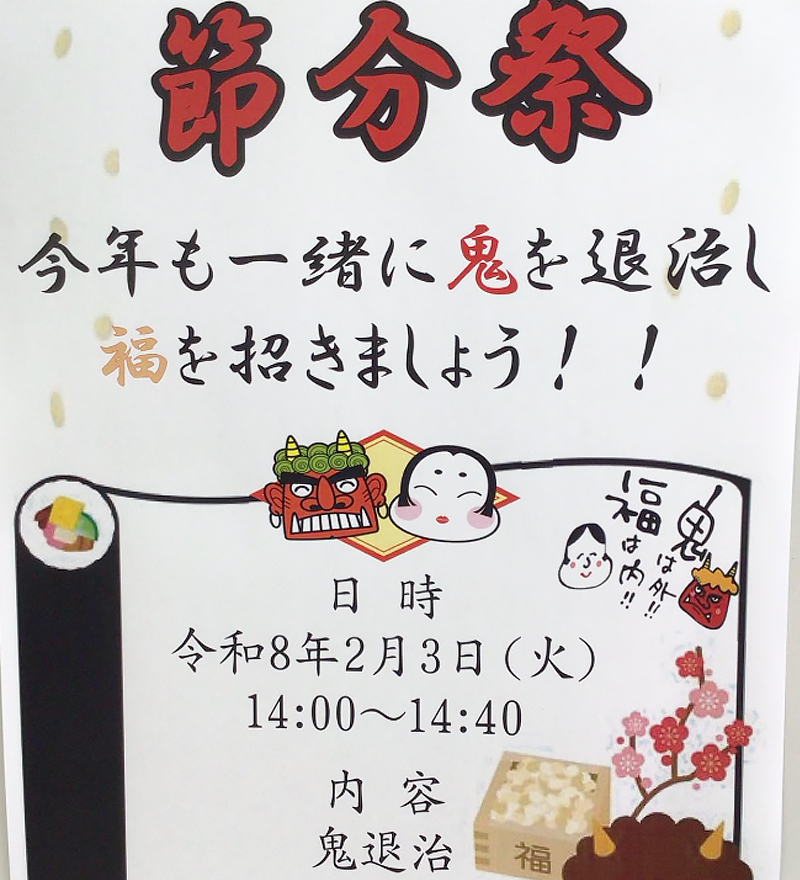 節分祭
今年も一緒に鬼を退治し
福を招きましょう！！
鬼は外!!
福は内!!
日 時
令和8年2月3日(火)
14:00～14:40
内 容
鬼退治
福